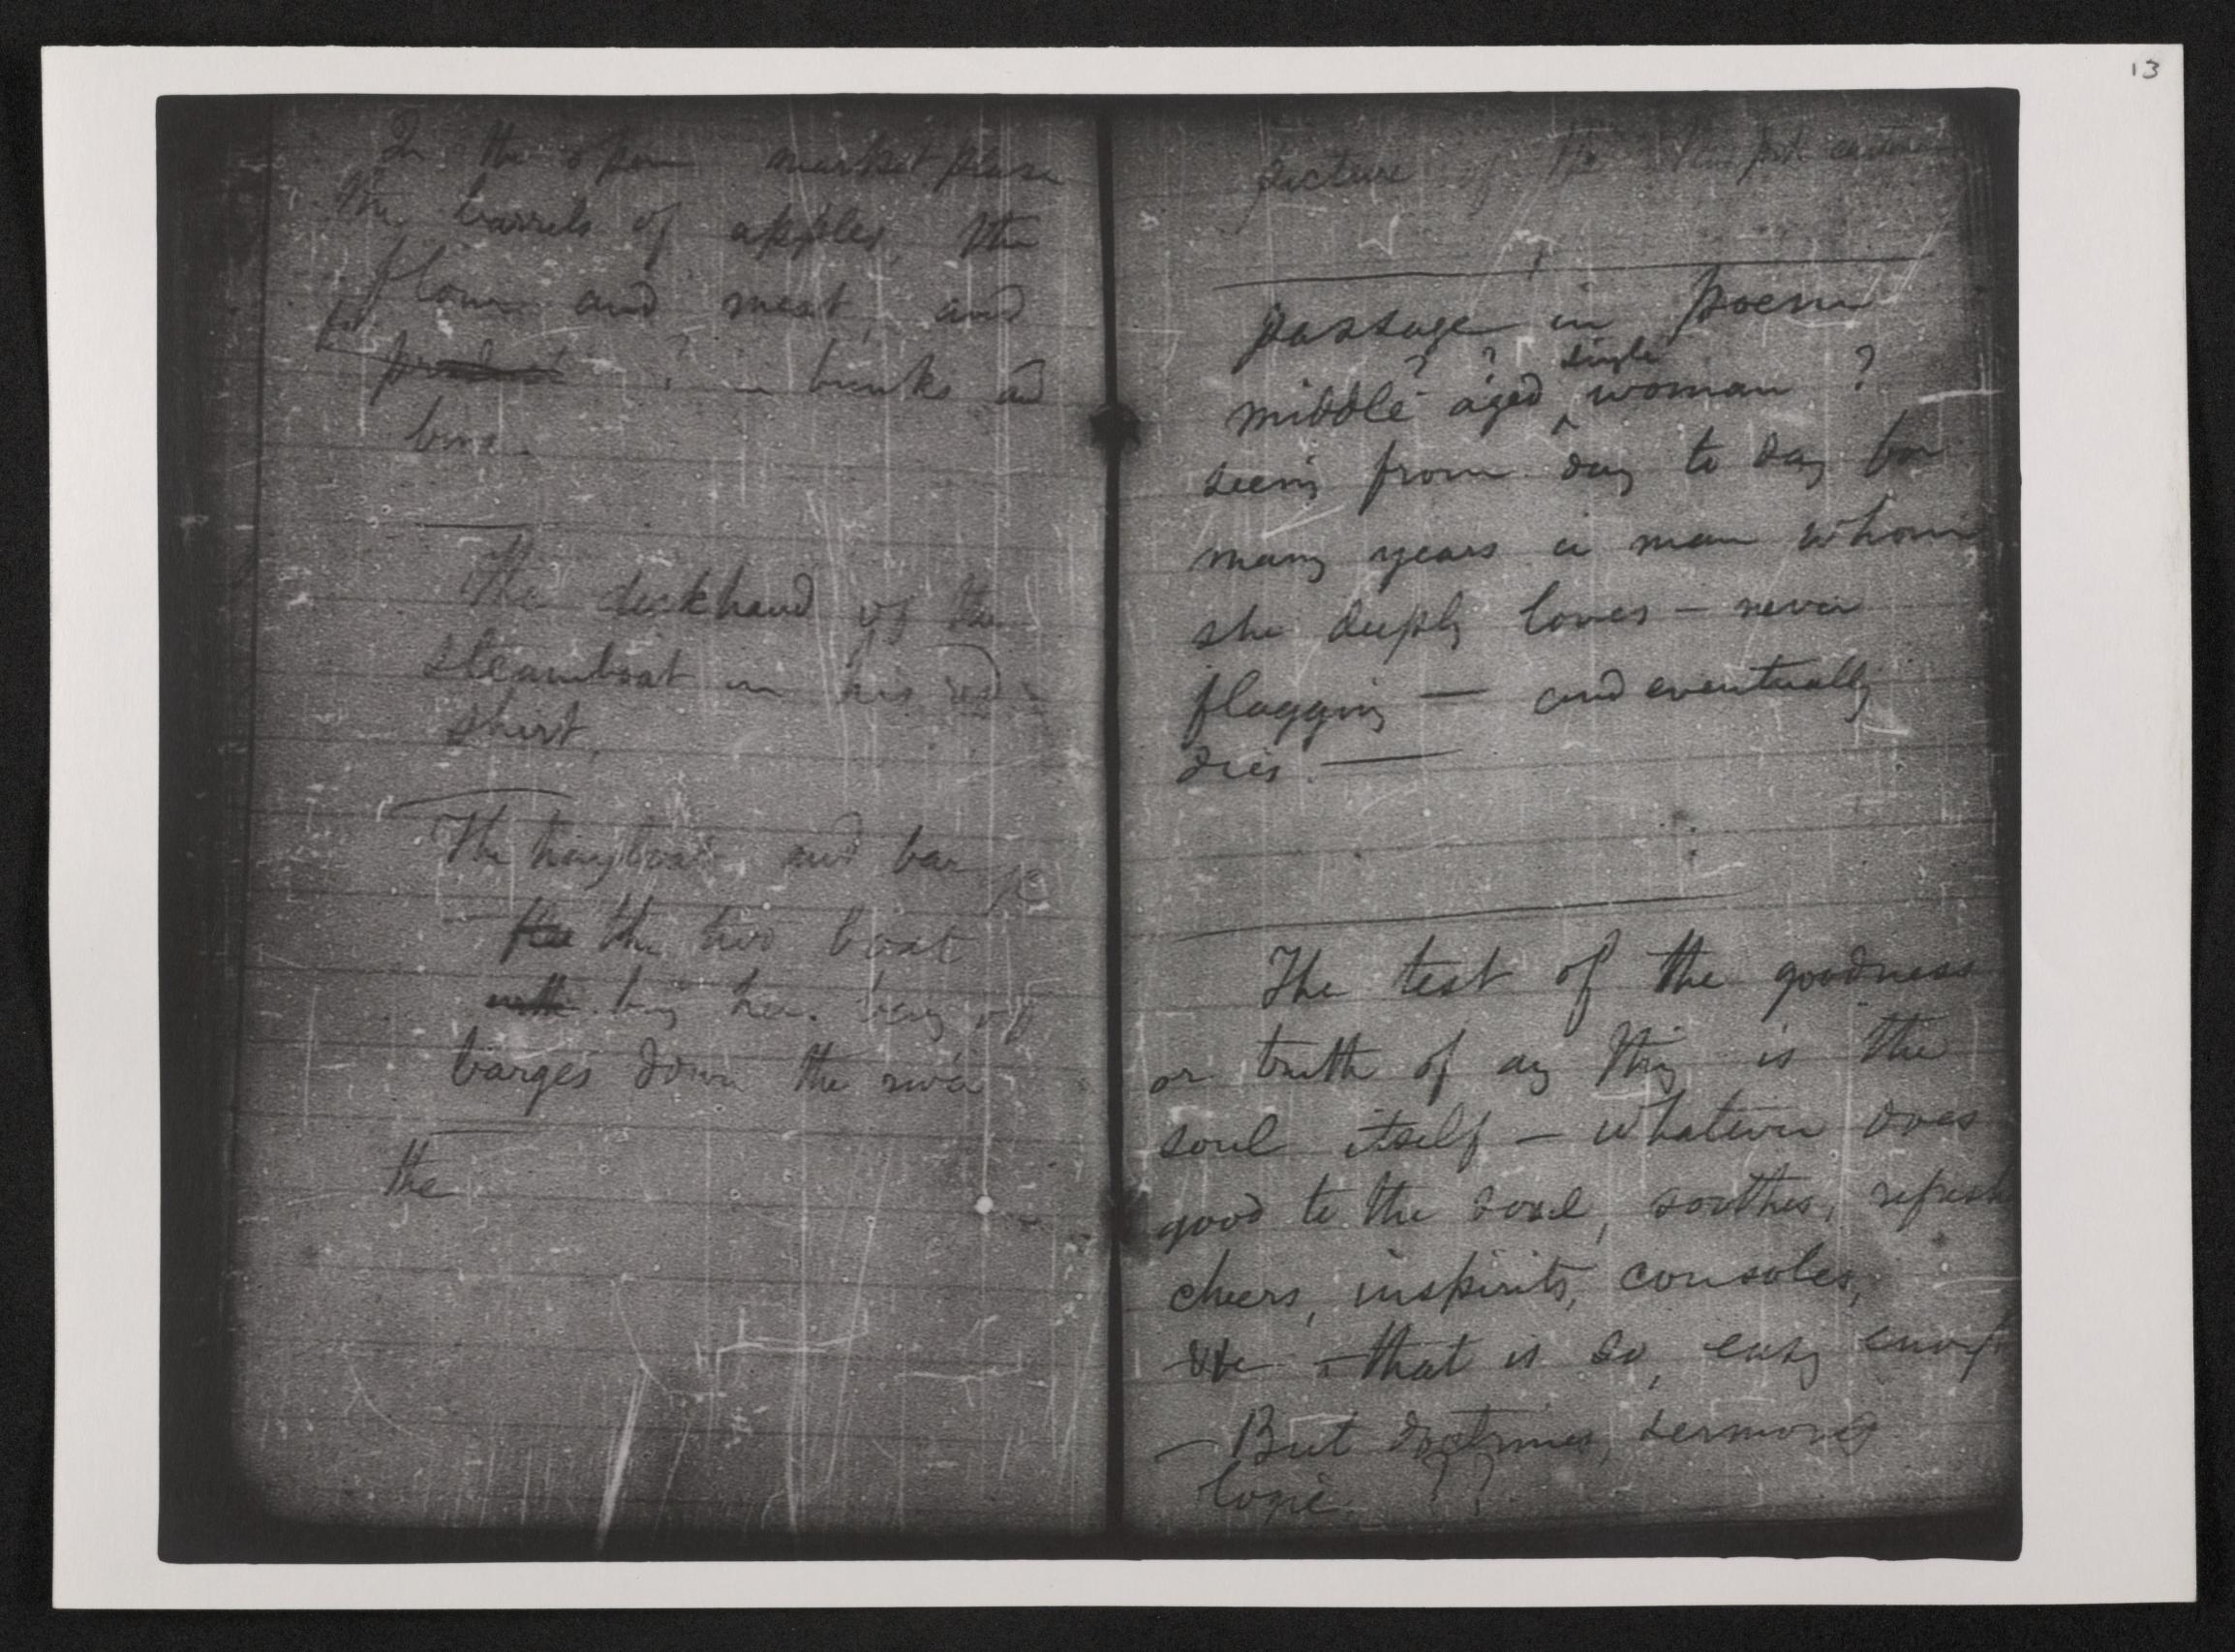 13
In the open market place
the barrels of apples, the
flour and meat, and
in bunks and
bins.
The deckhand of the
steamboat in his red
shirt,
The hayboat and barge
the two boat
barges down the river
the
picture of the
passage in poem
? ? single ?
middle aged ^ woman
seeing from day to day for
many years a man whom
she deeply loves — never
flagging — and eventually
dies. —
The test of the goodness
or truth of any thing is the
soul itself — whatever does
good to the soul, soothes, refresh
cheers, inspirits, consoles,
&c — that is so, easy enough
— But doctrines, sermons
logic. ? ?